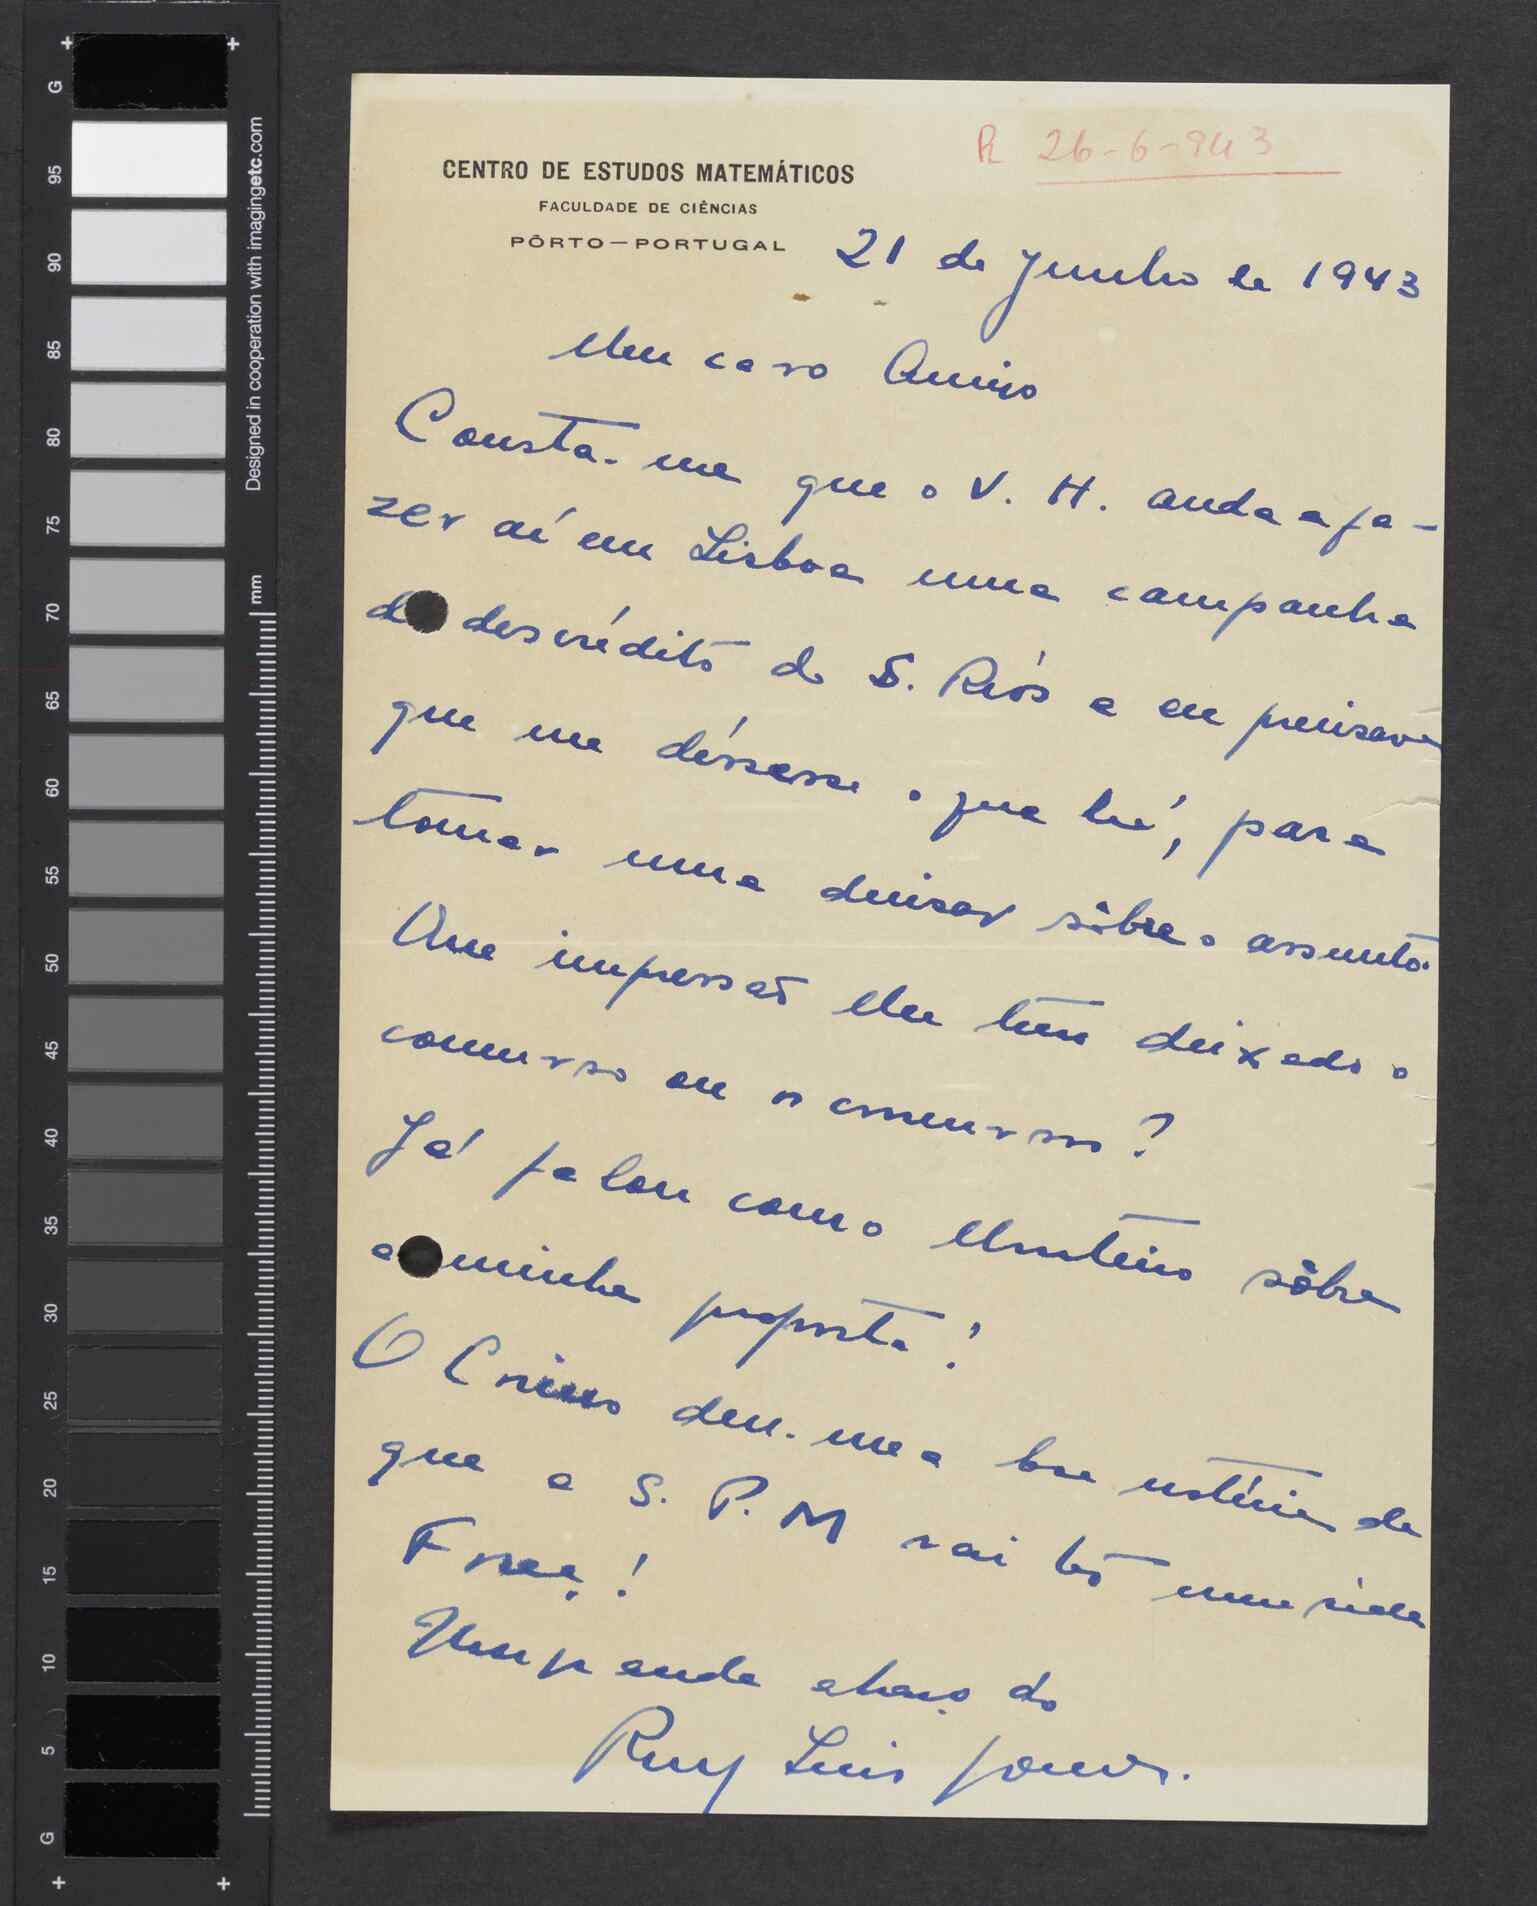 R 26-6-943
CENTRO DE ESTUDOS MATEMÁTICOS
FACULDADE DE CIÊNCIAS
PÔRTO—PORTUGAL
21 de Junho de 1943
Meu caro Amigo
Consta-me que o V. H. anda a fa-
zer aí em Lisboa uma campanha
de descrédito do S. Rios e eu precisava
que me dissesse o que há, para
tomar uma decisão sôbre o assunto.
Que impressão lhe tem deixado o
concurso ou os concursos?
Já falou com o Monteiro sôbre
a minha proposta?
O deu-me a boa notícia de
que a S. P. M vai ter uma séde
Fixe!
Um grande abraço do
Ruy Luis Gomes.
G
95
90
85
80
75
70
65
60
55
50
45
40
35
30
25
20
15
10
5
G
mm
Designed in cooperation with imagingetc.com